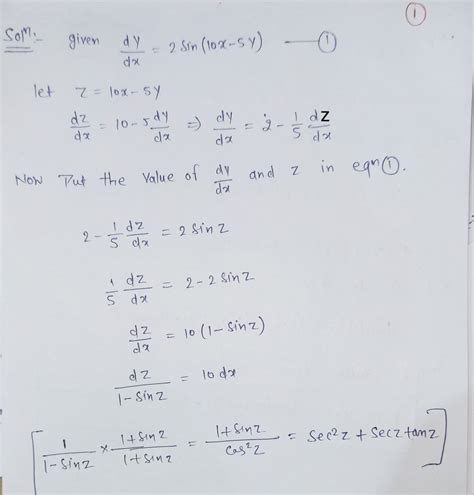 ①
Soln:- given dy/dx = 2 Sin(10x-5y) —— ①
let z = 10x-5y
dz/dx = 10-5 dy/dx ⇒ dy/dx = 2 - 1/5 dz/dx
Now Put the value of dy/dx and z in eqn①.
2 - 1/5 dz/dx = 2 Sin z
1/5 dz/dx = 2-2 Sin z
dz/dx = 10 (1-Sin z)
dz/1-Sin z = 10 dx
[1/1-Sin z × 1+Sin z/1+Sin z = 1+Sin z/Cos²z = Sec²z + Sec z tan z]